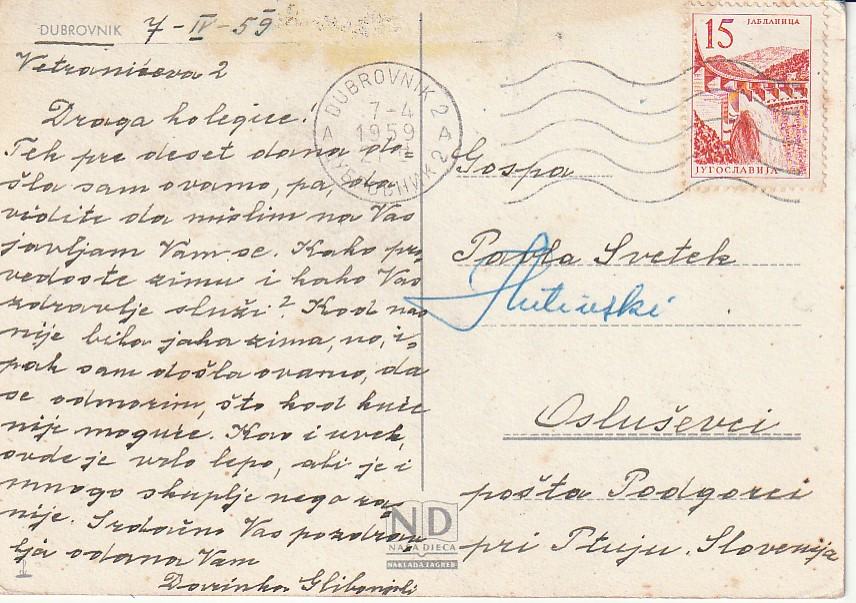 DUBROVNIK 7-IV-59
Vetranićeva 2
Draga kolegice!
Tek pre deset dana do=
šla sam ovamo, pa, da
vidite da mislim na Vas
javljam Vam se. Kako pro
vedoste zimu i kako Vas
zdravlje služi? Kod nas
nije bila jaka zima, no, i=
pak sam došla ovamo, da
se odmorim, što kod kuće
nije moguće. Kao i uvek,
ovde je vrlo lepo, ali je i
mnogo skuplje nego ra
nije. Srdačno Vas pozdrav
lja odana Vam
Dorinka
DUBROVNIK 2
7-4
1959
A A
ДУБРОВНИК 2
15
ЈАБЛАНИЦА
ЈУГОСЛАВИЈА
Gospa
Pavla Svetek
Osluševci
pošta Podgorci
pri Ptuju. Slovenija
ND
NAŠA DJECA
NAKLADA ZAGREB
1